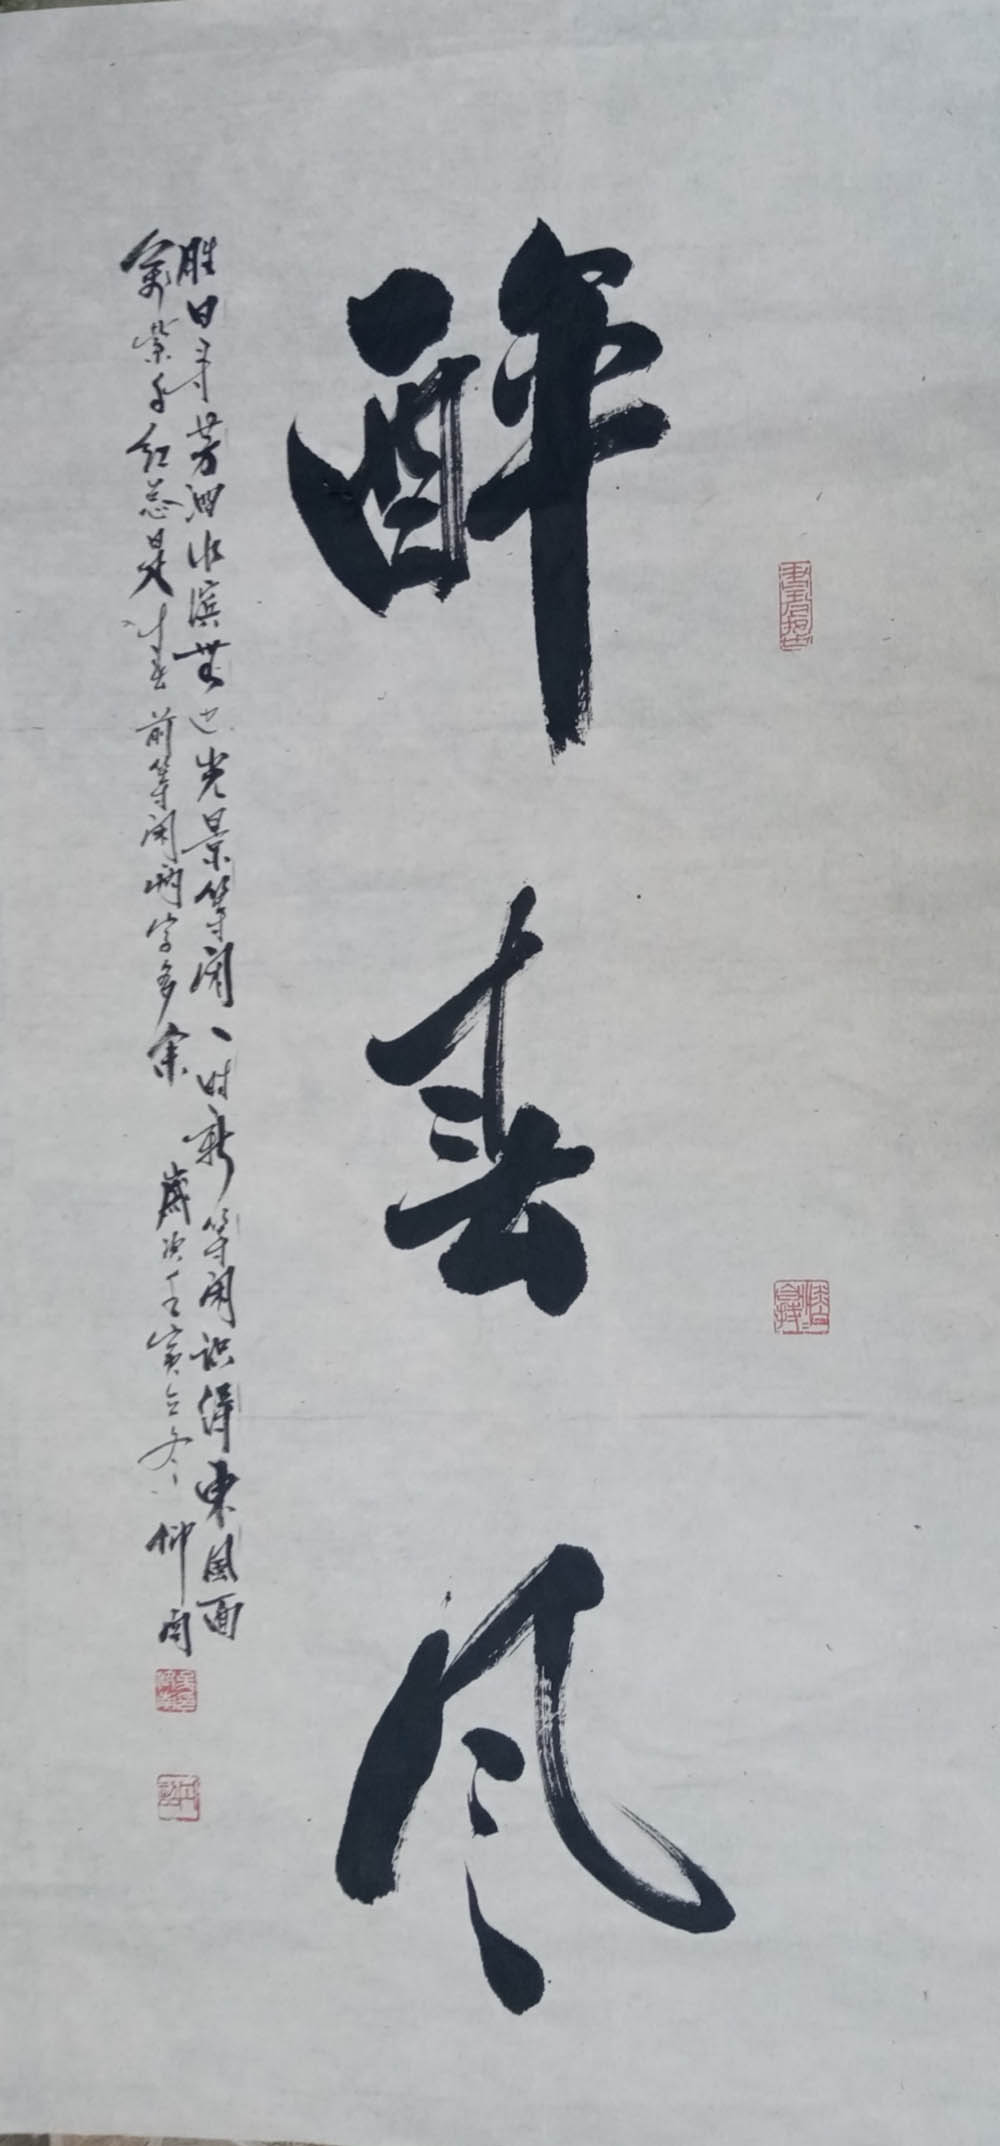 醉春风
胜日寻芳泗水滨无边光景等闲一时新等闲识得东风面
万紫千红总是春 前等闲两字多余 岁次壬寅立冬 仲阁